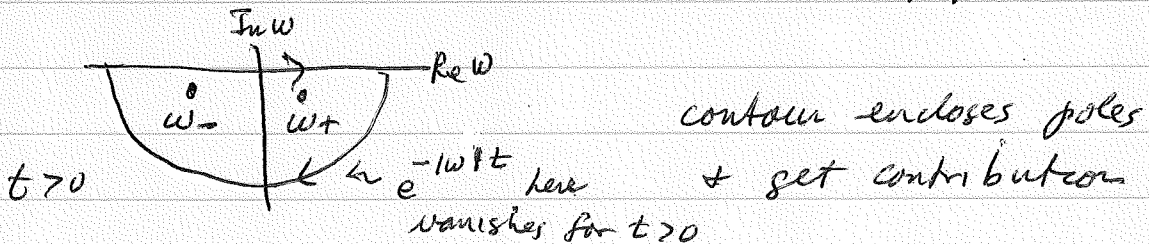 Im ω
Re ω
ω- ω+
contour encloses poles
t>0 e^{-|ω|t} here & get contribution
vanishes for t>0